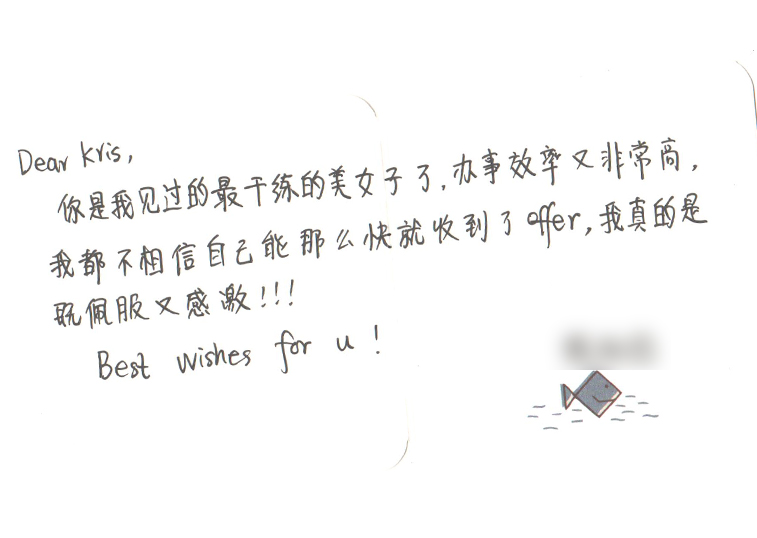 Dear Kris,
你是我见过的最干练的美女子了,办事效率又非常高,
我都不相信自己能那么快就收到了offer,我真的是
既佩服又感激!!!
Best wishes for u!